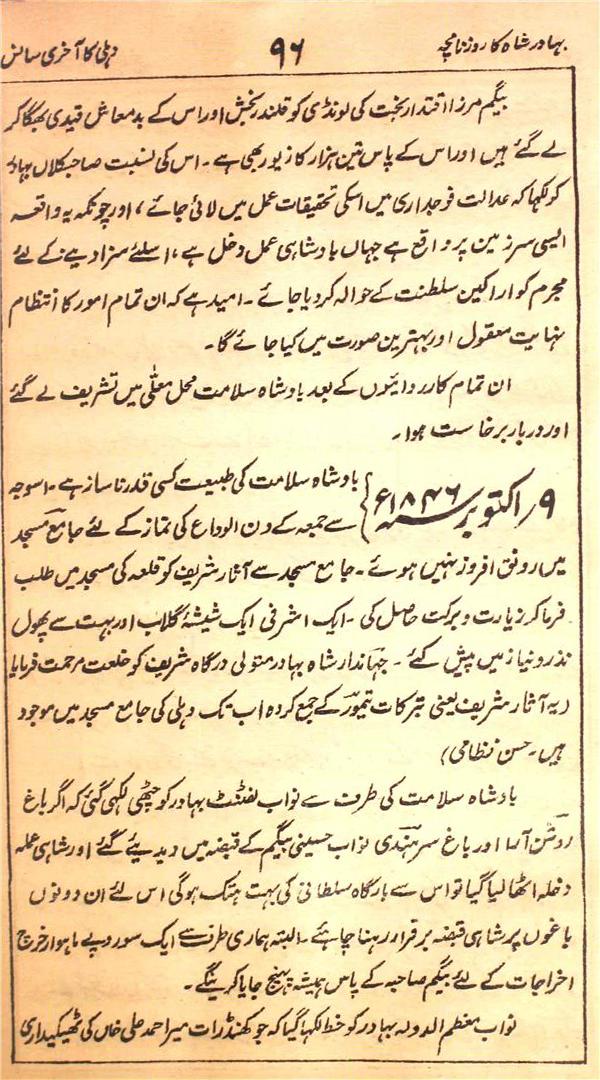 بہادر شاہ کا روزنامچہ
۹۶
دہلی کا آخری سانس
بیگم مرزا اقتدار بخت کی لونڈی کو قلندر بخش اور اس کے بدمعاش قیدی بھگا کر
لے گئے ہیں اور اس کے پاس تین ہزار کا زیور بھی ہے۔ اس کی نسبت صاحبکلاں بہادر
کو لکھا کہ عدالت فوجداری میں اسکی تحقیقات عمل میں لائی جائے، اور چونکہ یہ واقعہ
ایسی سرزمین پر واقع ہے جہاں بادشاہی عمل دخل ہے، اسلئے سزا دینے کے لئے
مجرم کو اراکین سلطنت کے حوالہ کر دیا جائے۔ امید ہے کہ ان تمام امور کا انتظام
نہایت معقول اور بہترین صورت میں کیا جائے گا۔
ان تمام کارروائیوں کے بعد بادشاہ سلامت محل معلّٰی میں تشریف لے گئے
اور دربار برخاست ہوا۔
۹؍ اکتوبر ۱۸۴۶ء} بادشاہ سلامت کی طبیعت کسی قدر ناساز ہے۔ اسوجہ
سے جمعہ کے دن الوداع کی نماز کے لئے جامع مسجد
میں رونق افروز نہیں ہوئے۔ جامع مسجد سے آثار شریف کو قلعہ کی مسجد میں طلب
فرما کر زیارت و برکت حاصل کی۔ ایک اشرفی ایک شیشۂ گلاب اور بہت سے پھول
نذر و نیاز میں پیش کئے۔ جہاندار شاہ بہادر متولی درگاہ شریف کو خلعت مرحمت فرمایا
(یہ آثار شریف یعنی تبرکات تیمور کے جمع کردہ اب تک دہلی کی جامع مسجد میں موجود
ہیں۔ حسن نظامی)
بادشاہ سلامت کی طرف سے نواب لفٹنٹ بہادر کو چٹھی لکھی گئی کہ اگر باغ
روشن آرا اور باغ سرہندی نواب حسینی بیگم کے قبضہ میں دیدیئے گئے اور شاہی عملہ
دخلہ اٹھا لیا گیا تو اس سے بارگاہ سلطانی کی بہت ہتک ہوگی اس لئے ان دونوں
باغوں پر شاہی قبضہ برقرار رہنا چاہئے۔ البتہ ہماری طرف سے ایک سو روپے ماہوار خرچ
اخراجات کے لئے بیگم صاحبہ کے پاس ہمیشہ پہنچ جایا کرینگے۔
نواب معظم الدولہ بہادر کو خط لکھا گیا کہ جو کھنڈرات میر احمد علی خاں کی ٹھیکیداری